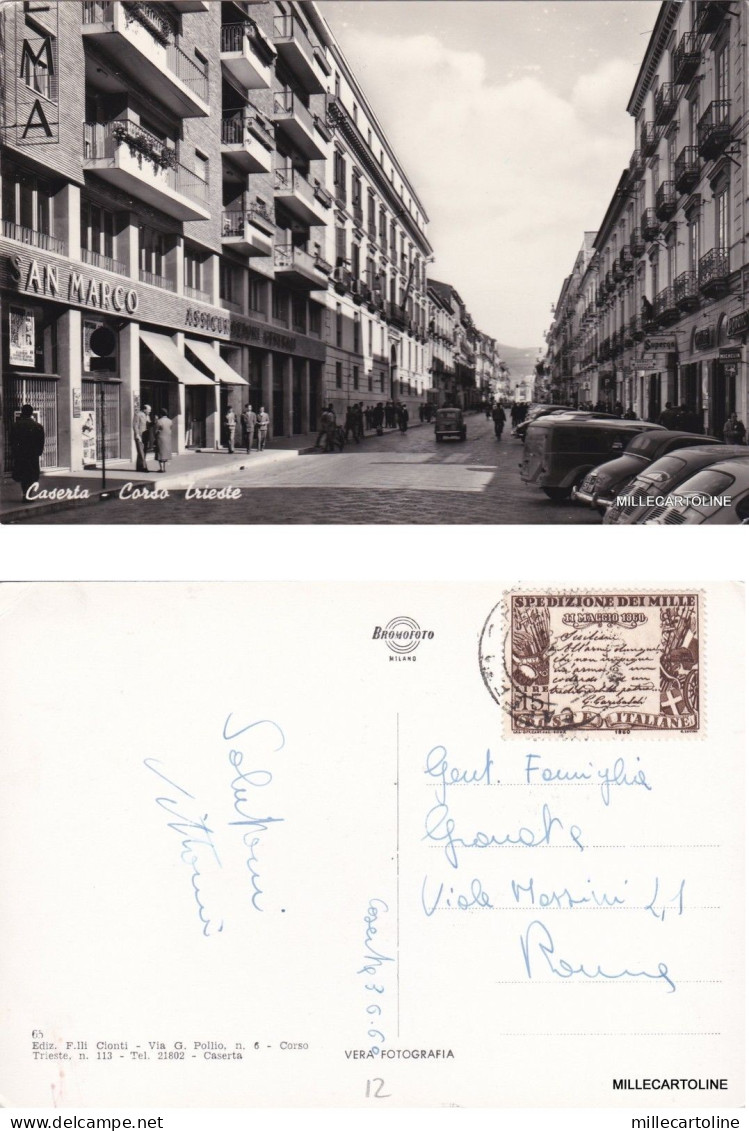 EMA
SAN MARCO
ASSICURAZIONI GENERALI
Caserta - Corso Trieste
MILLECARTOLINE
BROMOFOTO
MILANO
SPEDIZIONE DEI MILLE
11 MAGGIO 1860
LIRE
15
G. Garibaldi
POSTE ITALIANE
1960
Gent. Famiglia
Granata
Viale Mazzini 2,1
Roma
Salutoni
Vittorini
Caserta 3 6.60
65
Ediz. F.lli Cionti - Via G. Pollio, n. 6 - Corso
Trieste, n. 113 - Tel. 21802 - Caserta
VERA FOTOGRAFIA
12
MILLECARTOLINE
delcampe.net
millecartoline